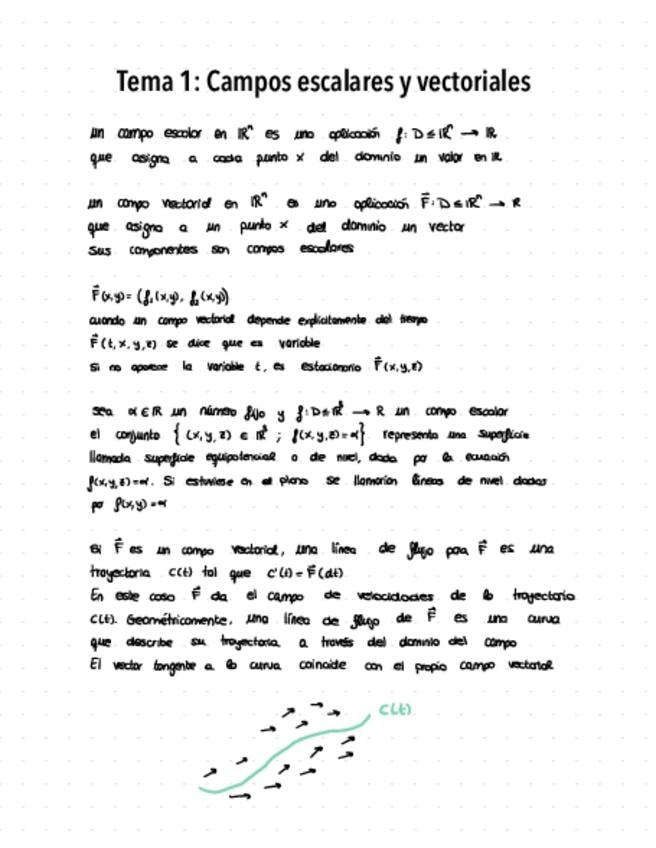 Tema 1: Campos escalares y vectoriales
un campo escalar en ℝⁿ es una aplicación f: D ⊆ ℝⁿ → ℝ
que asigna a cada punto x del dominio un valor en ℝ
un campo vectorial en ℝⁿ es una aplicación F⃗: D ⊆ ℝⁿ → ℝ
que asigna a un punto x del dominio un vector
sus componentes son campos escalares
F⃗(x,y) = (f₁(x,y), f₂(x,y))
cuando un campo vectorial depende explícitamente del tiempo
F⃗(t, x, y, z) se dice que es variable
si no aparece la variable t, es estacionario F⃗(x,y,z)
sea α ∈ ℝ un número fijo y f: D ⊆ ℝ³ → ℝ un campo escalar
el conjunto { (x, y, z) ∈ ℝ³ ; f(x,y,z)=α } representa una superficie
llamada superficie equipotencial o de nivel, dada por la ecuación
f(x,y,z)=α. Si estuviese en el plano se llamarían líneas de nivel dadas
por f(x,y)=α
si F⃗ es un campo vectorial, una línea de flujo para F⃗ es una
trayectoria c(t) tal que c'(t) = F⃗(dt)
En este caso F⃗ da el campo de velocidades de la trayectoria
c(t). Geométricamente, una línea de flujo de F⃗ es una curva
que describe su trayectoria a través del dominio del campo
El vector tangente a la curva coincide con el propio campo vectorial
c(t)